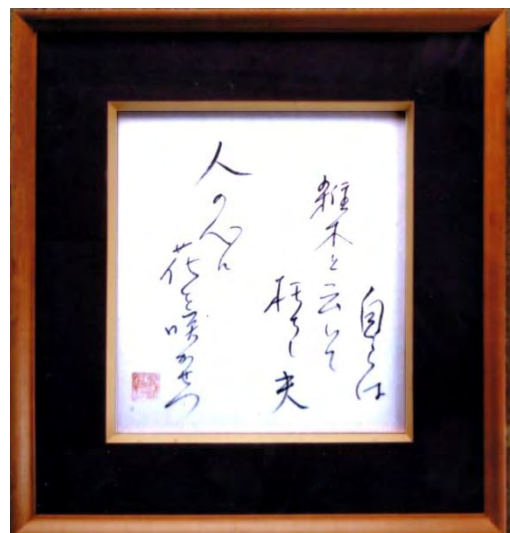 自らは
雑木と云いて
枯ちし夫
人の心に
花を咲かせつ